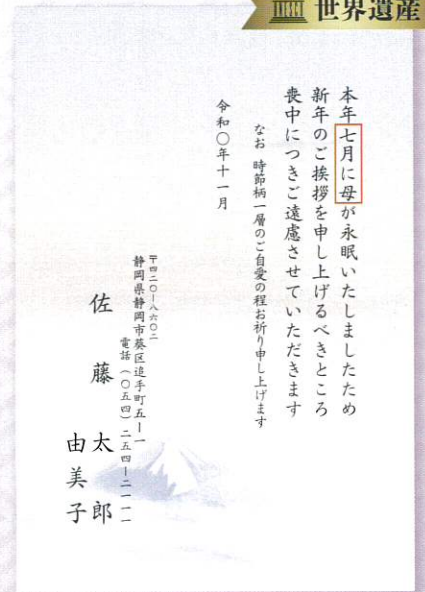 世界遺産
本年七月に母が永眠いたしましたため
新年のご挨拶を申し上げるべきところ
喪中につきご遠慮させていただきます
なお 時節柄一層のご自愛の程お祈り申し上げます
令和〇年十一月
〒四二〇ー八六〇二
静岡県静岡市葵区追手町五ー一
電話(〇五四)二五四ー二一一一
佐藤太郎
由美子